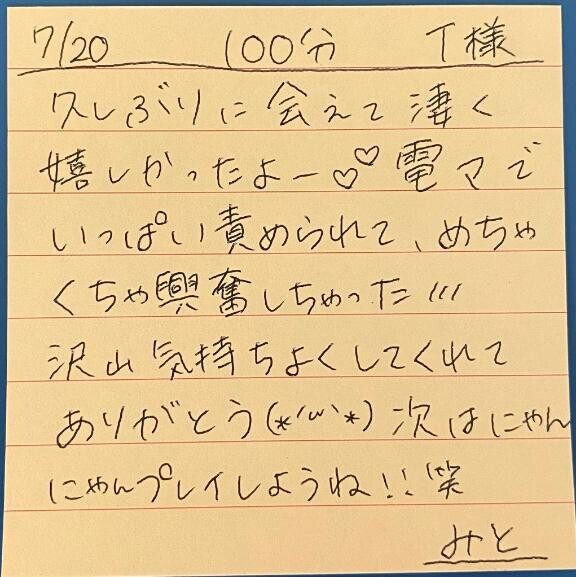 7/20 100分 T様
久しぶりに会えて凄く
嬉しかったよー♡♡電マで
いっぱい責められて、めちゃ
くちゃ興奮しちゃった///
沢山気持ちよくしてくれて
ありがとう(*'ω'*)次はにゃん
にゃんプレイしようね!!笑
みと